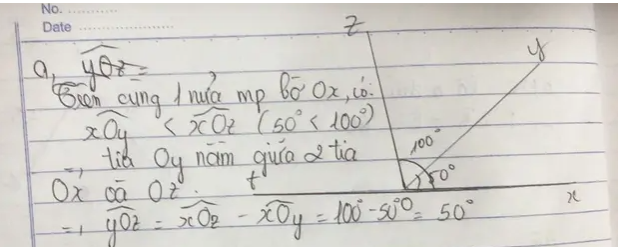 No. ............
Date ........................
z
y
a, yOz =
Trên cùng 1 nửa mp bờ Ox, có:
xOy < xOz (50° < 100°)
=, tia Oy nằm giữa 2 tia
Ox và Oz.
=, yOz = xOz - xOy = 100° - 50° = 50°
100°
50°
t
x